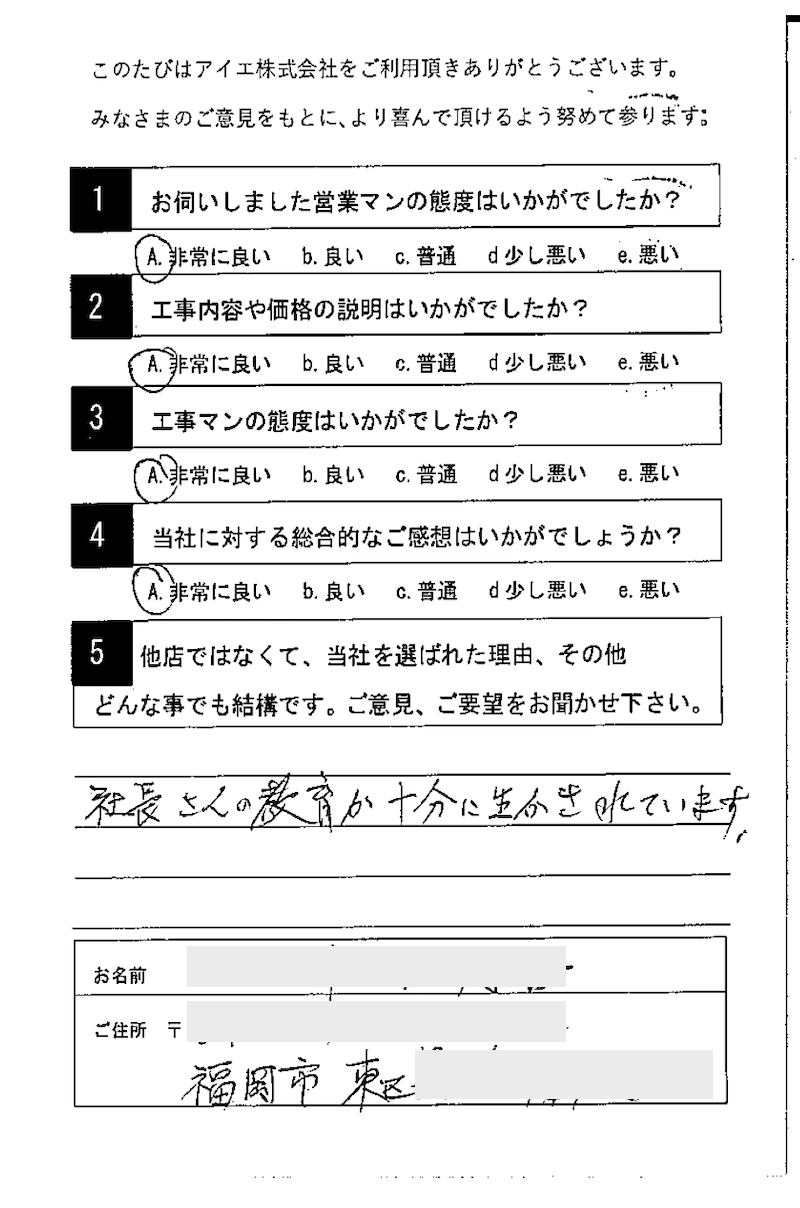 このたびはアイエ株式会社をご利用頂きありがとうございます。
みなさまのご意見をもとに、より喜んで頂けるよう努めて参ります。
1 お伺いしました営業マンの態度はいかがでしたか？
A. 非常に良い b. 良い c. 普通 d 少し悪い e. 悪い
2 工事内容や価格の説明はいかがでしたか？
A. 非常に良い b. 良い c. 普通 d 少し悪い e. 悪い
3 工事マンの態度はいかがでしたか？
A. 非常に良い b. 良い c. 普通 d 少し悪い e. 悪い
4 当社に対する総合的なご感想はいかがでしょうか？
A. 非常に良い b. 良い c. 普通 d 少し悪い e. 悪い
5 他店ではなくて、当社を選ばれた理由、その他
どんな事でも結構です。ご意見、ご要望をお聞かせ下さい。
社長さんの教育が十分に生かされています。
お名前
ご住所 〒
福岡市 東区